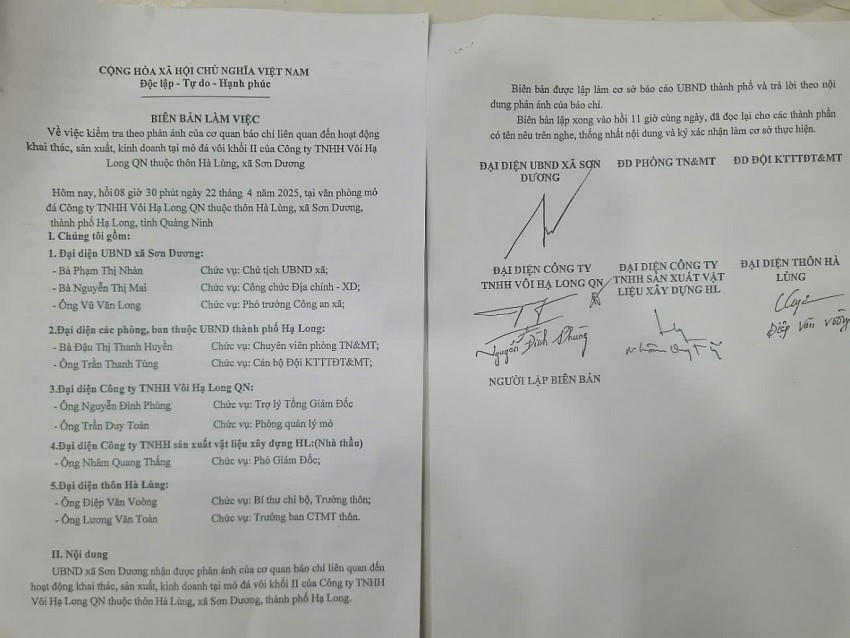 CỘNG HÒA XÃ HỘI CHỦ NGHĨA VIỆT NAM
Độc lập - Tự do - Hạnh phúc
BIÊN BẢN LÀM VIỆC
Về việc kiểm tra theo phản ánh của cơ quan báo chí liên quan đến hoạt động
khai thác, sản xuất, kinh doanh tại mỏ đá vôi khối II của Công ty TNHH Vôi Hạ
Long QN thuộc thôn Hà Lùng, xã Sơn Dương
Hôm nay, hồi 08 giờ 30 phút ngày 22 tháng 4 năm 2025, tại văn phòng mỏ
đá Công ty TNHH Vôi Hạ Long QN thuộc thôn Hà Lùng, xã Sơn Dương,
thành phố Hạ Long, tỉnh Quảng Ninh
I. Chúng tôi gồm:
1. Đại diện UBND xã Sơn Dương:
- Bà Phạm Thị Nhàn Chức vụ: Chủ tịch UBND xã;
- Bà Nguyễn Thị Mai Chức vụ: Công chức Địa chính - XD;
- Ông Vũ Văn Long Chức vụ: Phó trưởng Công an xã;
2.Đại diện các phòng, ban thuộc UBND thành phố Hạ Long:
- Bà Đậu Thị Thanh Huyền Chức vụ: Chuyên viên phòng TN&MT;
- Ông Trần Thanh Tùng Chức vụ: Cán bộ Đội KTTTĐT&MT;
3.Đại diện Công ty TNHH Vôi Hạ Long QN:
- Ông Nguyễn Đình Phùng Chức vụ: Trợ lý Tổng Giám Đốc
- Ông Trần Duy Toản Chức vụ: Phòng quản lý mỏ
4.Đại diện Công ty TNHH sản xuất vật liệu xây dựng HL:(Nhà thầu)
- Ông Nhâm Quang Thắng Chức vụ: Phó Giám Đốc;
5.Đại diện thôn Hà Lùng:
- Ông Điệp Văn Voòng Chức vụ: Bí thư chi bộ, Trưởng thôn;
- Ông Lương Văn Toàn Chức vụ: Trưởng ban CTMT thôn.
II. Nội dung
UBND xã Sơn Dương nhận được phản ánh của cơ quan báo chí liên quan đến
hoạt động khai thác, sản xuất, kinh doanh tại mỏ đá vôi khối II của Công ty TNHH
Vôi Hạ Long QN thuộc thôn Hà Lùng, xã Sơn Dương, thành phố Hạ Long.
Biên bản được lập làm cơ sở báo cáo UBND thành phố và trả lời theo nội
dung phản ánh của báo chí.
Biên bản lập xong vào hồi 11 giờ cùng ngày, đã đọc lại cho các thành phần
có tên nêu trên nghe, thống nhất nội dung và ký xác nhận làm cơ sở thực hiện.
ĐẠI DIỆN UBND XÃ SƠN DƯƠNG
ĐD PHÒNG TN&MT
ĐD ĐỘI KTTTĐT&MT
ĐẠI DIỆN CÔNG TY
TNHH VÔI HẠ LONG QN
ĐẠI DIỆN CÔNG TY
TNHH SẢN XUẤT VẬT
LIỆU XÂY DỰNG HL
ĐẠI DIỆN THÔN HÀ
LÙNG
Nguyễn Đình Phùng
Điệp Văn Voòng
NGƯỜI LẬP BIÊN BẢN